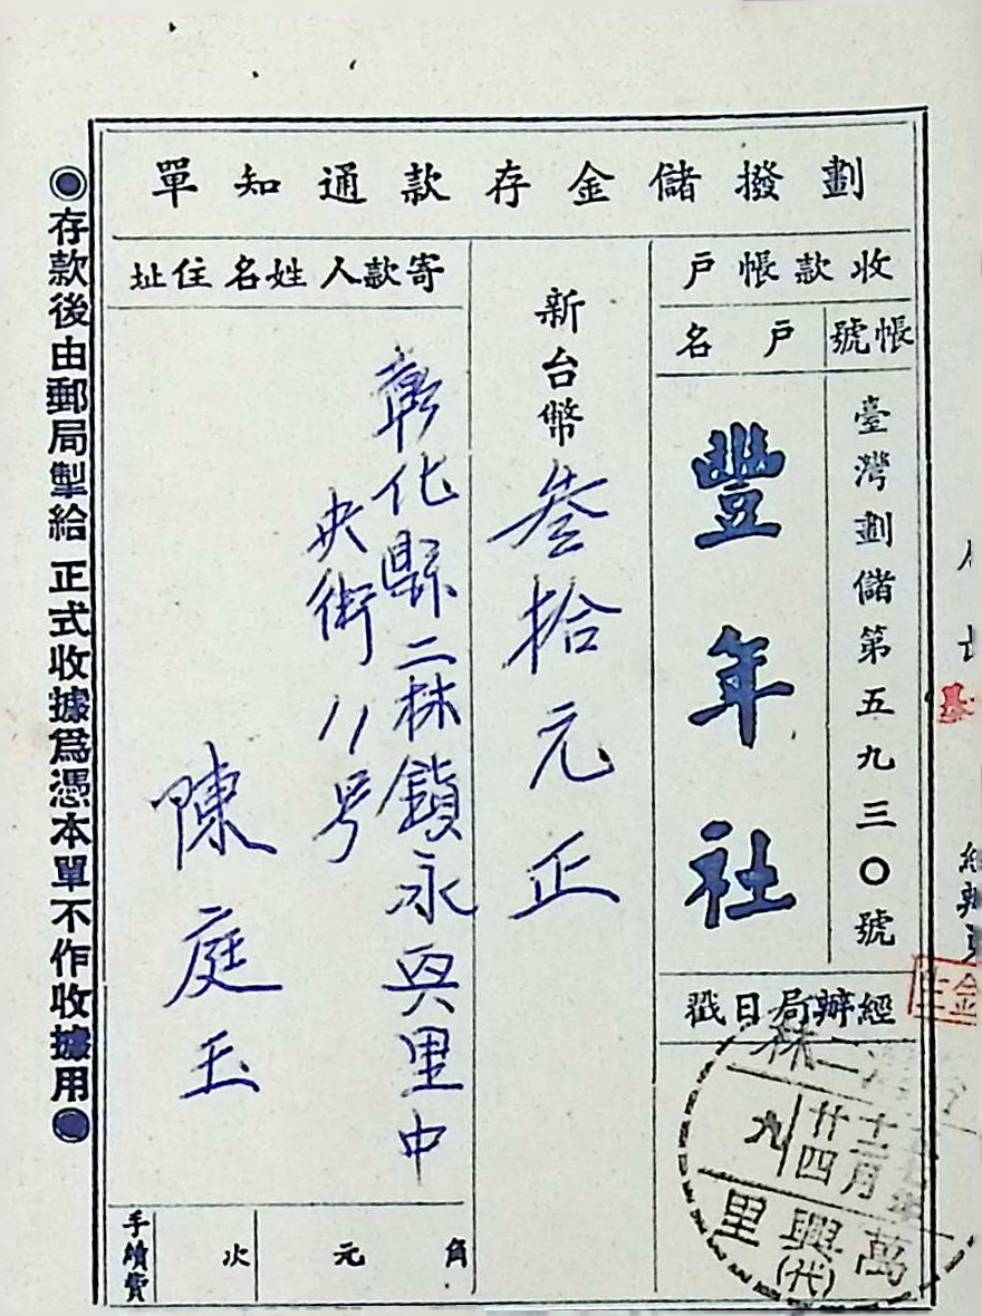 劃撥儲金存款通知單
收款帳戶
帳號
臺灣劃儲第五九三〇號
戶名
豐年社
經辦局日戳
二林
十二月
廿四
九
萬興里
(代)
新台幣叁拾元正
寄款人姓名住址
彰化縣二林鎮永興里中
央街11号
陳庭玉
角
元
次
手續費
◉存款後由郵局掣給正式收據爲憑本單不作收據用◉